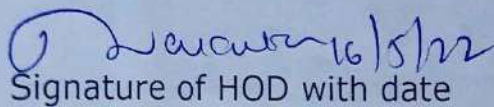 16/5/22
Signature of HOD with date